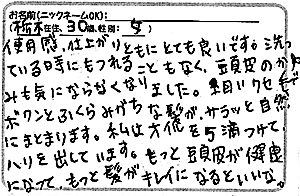 お名前(ニックネームOK):
(栃木在住、30歳、性別: 女 )
使用感、仕上がりともにとても良いです。洗っ
ている時にもつれることもなく、頭皮のかゆ
みも気にならなくなりました。細いクセ毛で
ボワンとふくらみがちな髪が、サラッと自然
にまとまります。私は方花を5滴つけて、
ハリを出しています。もっと頭皮が健康
になって、もっと髪がキレイになるといいな。